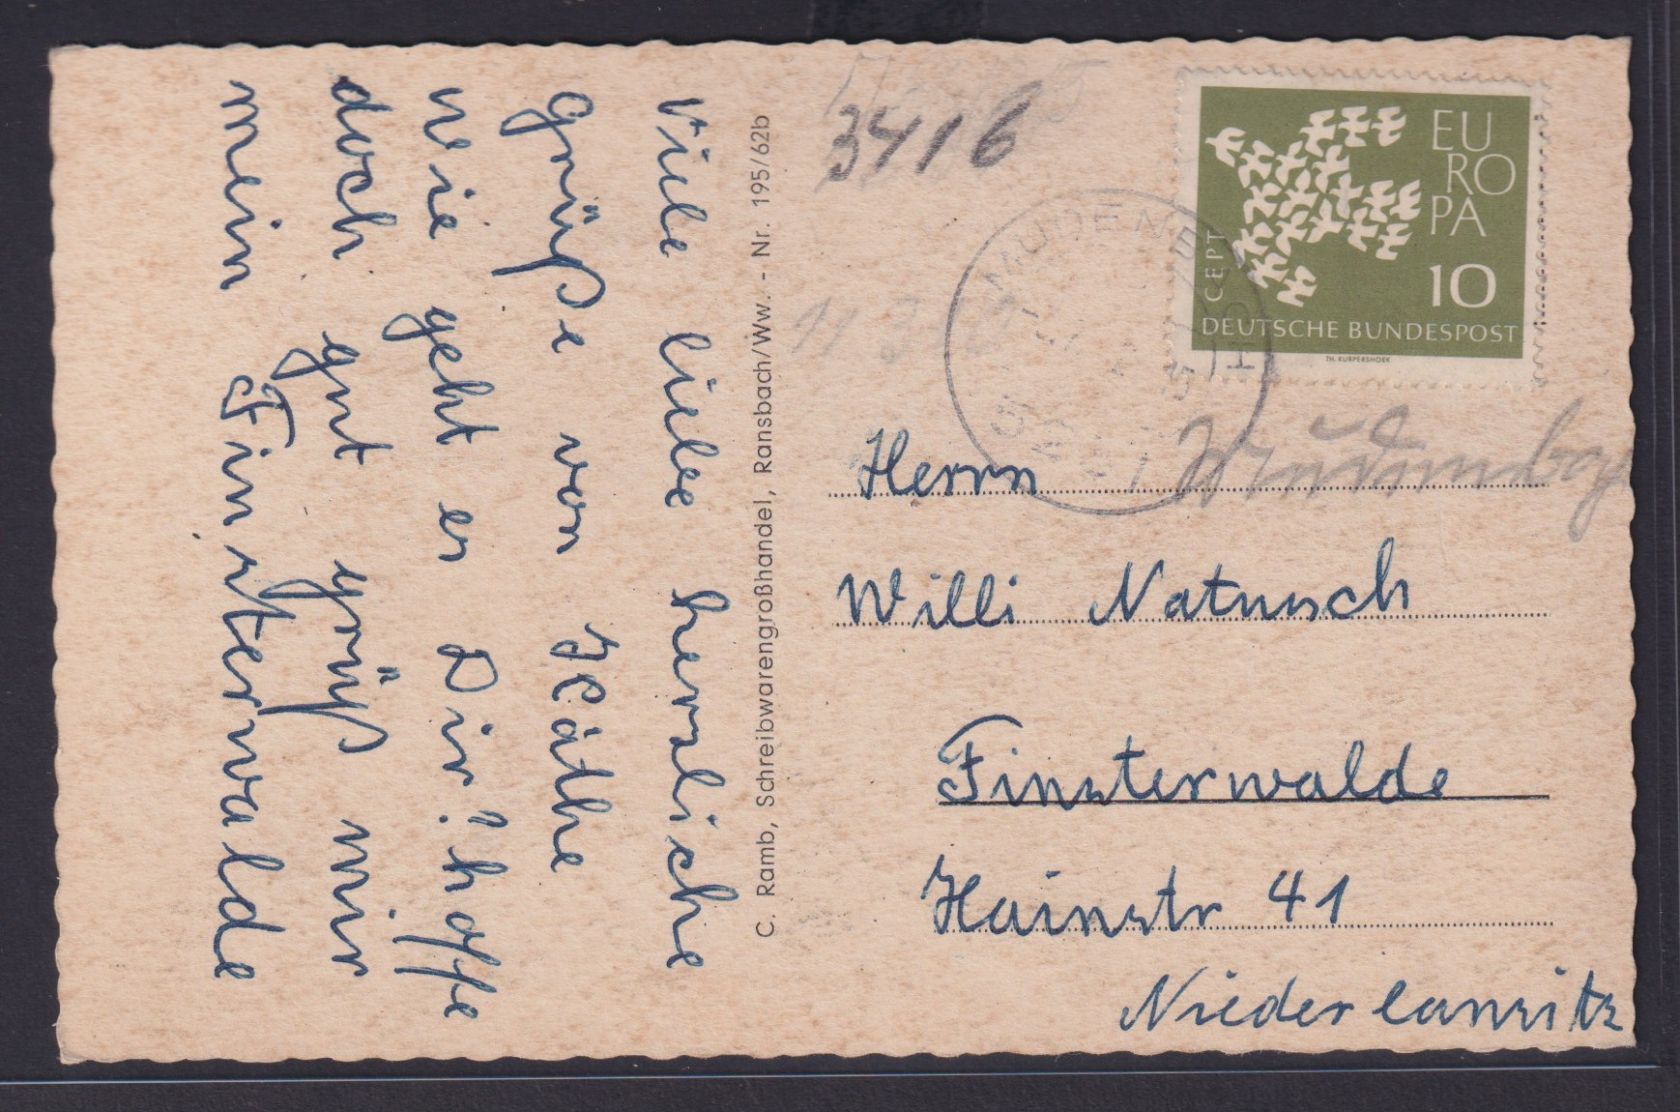 Viele liebe herzliche
Grüße von Käthe
wie geht es Dir? hoffe
doch gut grüß mir
mein Finsterwalde
C. Ramb, Schreibwarengroßhandel, Ransbach/Ww. - Nr. 195/62b
3416
EU
RO
PA
10
CEPT
DEUTSCHE BUNDESPOST
TH. KURPERSHOEK
Herrn
Willi Natusch
Finsterwalde
Hainstr 41
Niederlausitz